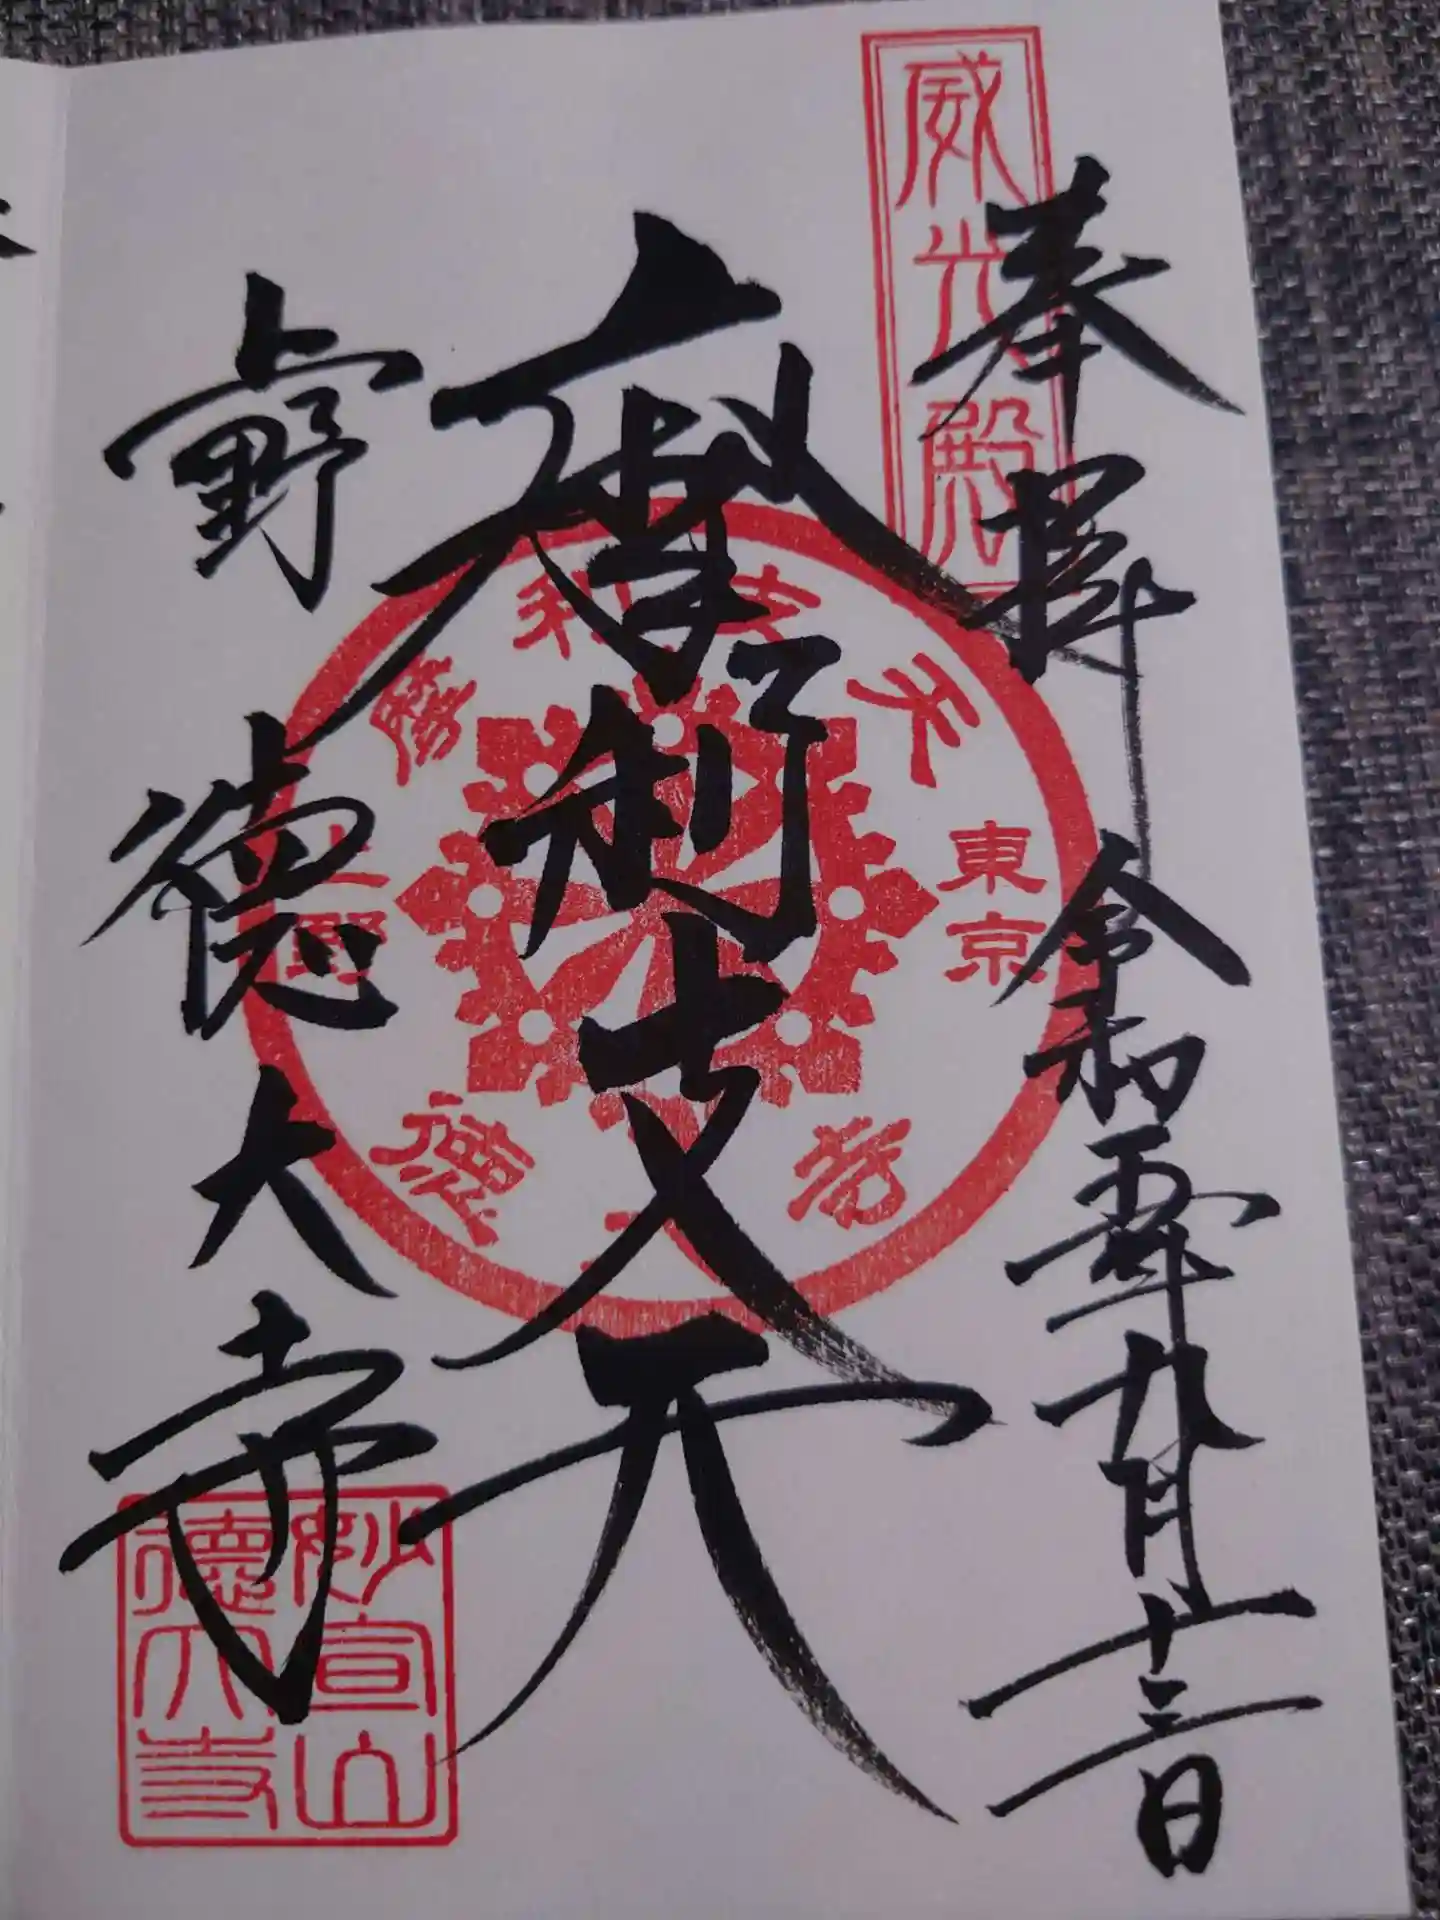 威光殿
奉拝 令和年九月廿三日
摩利支天
上野 徳大寺
摩利支天
東京
上野
徳大寺
妙宣山
徳大寺